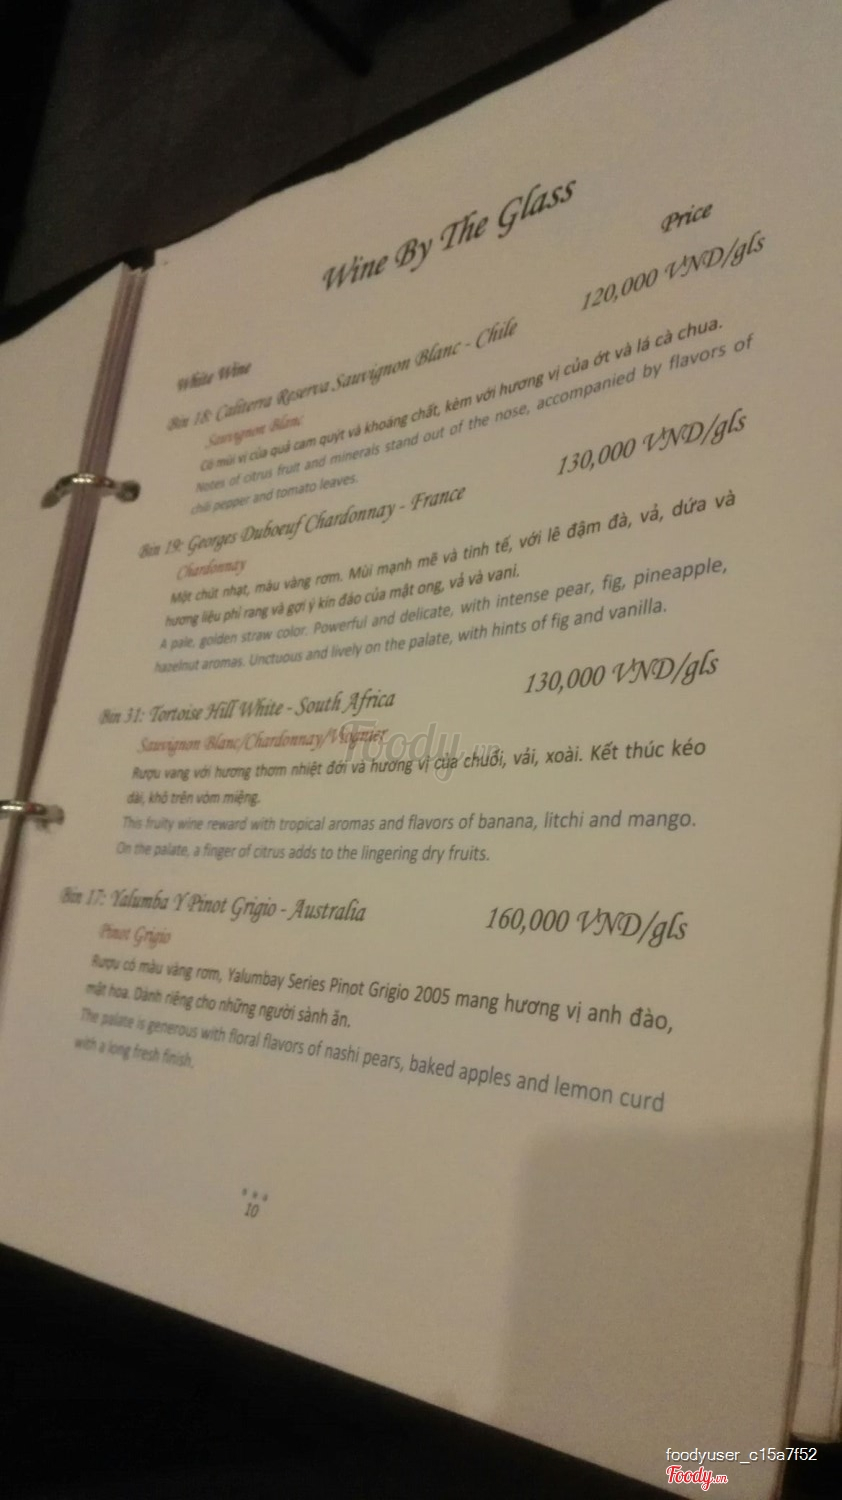 Wine By The Glass
Price
White Wine
Bin 18: Caliterra Reserva Sauvignon Blanc - Chile 120,000 VND/gls
Sauvignon Blanc
Có mùi vị của quả cam quýt và khoáng chất, kèm với hương vị của ớt và lá cà chua.
Notes of citrus fruit and minerals stand out of the nose, accompanied by flavors of
chili pepper and tomato leaves.
Bin 19: Georges Duboeuf Chardonnay - France 130,000 VND/gls
Chardonnay
Một chút nhạt, màu vàng rơm. Mùi mạnh mẽ và tinh tế, với lê đậm đà, vả, dứa và
hương liệu phỉ rang và gợi ý kín đáo của mật ong, vả và vani.
A pale, golden straw color. Powerful and delicate, with intense pear, fig, pineapple,
hazelnut aromas. Unctuous and lively on the palate, with hints of fig and vanilla.
Bin 31: Tortoise Hill White - South Africa 130,000 VND/gls
Sauvignon Blanc/Chardonnay/Viognier
Rượu vang với hương thơm nhiệt đới và hương vị của chuối, vải, xoài. Kết thúc kéo
dài, khô trên vòm miệng.
This fruity wine reward with tropical aromas and flavors of banana, litchi and mango.
On the palate, a finger of citrus adds to the lingering dry fruits.
Bin 17: Yalumba Y Pinot Grigio - Australia 160,000 VND/gls
Pinot Grigio
Rượu có màu vàng rơm, Yalumbay Series Pinot Grigio 2005 mang hương vị anh đào,
mật hoa. Dành riêng cho những người sành ăn.
The palate is generous with floral flavors of nashi pears, baked apples and lemon curd
with a long fresh finish.
10
Foody.vn
foodyuser_c15a7f52
Foody.vn